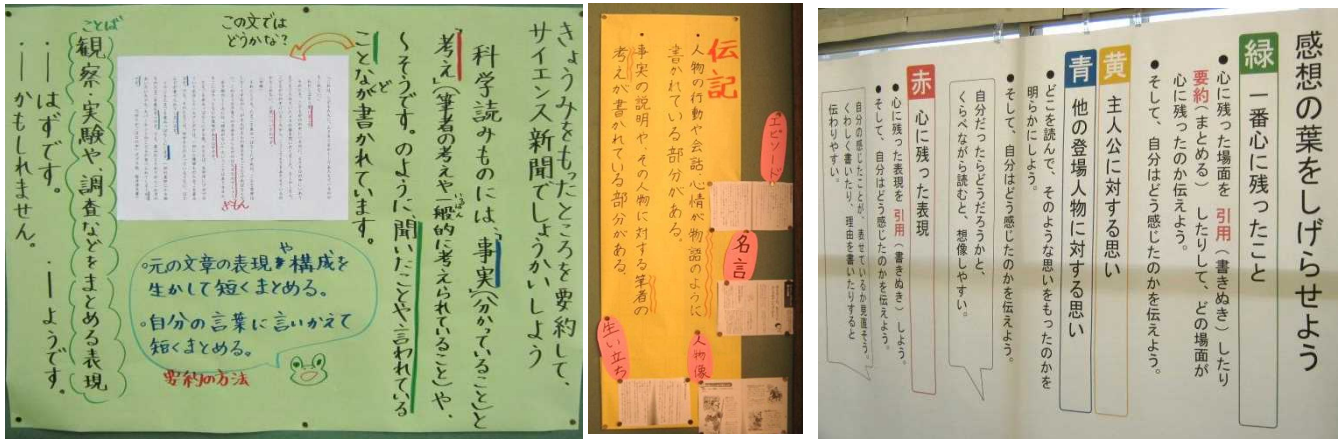 きょうみをもったところを要約して、
サイエンス新聞でしょうかいしよう
科学読みものには、「事実」(分かっていること)と
「考え」(筆者の考えや一般的に考えられていること)や、
〜そうです。のように、聞いたことや言われている
ことなどが書かれています。
この文では
どうかな?
ぎもん
ことば
観察・実験や、調査などをまとめる表現
・―はずです。 ・―ようです。
・―かもしれません。
○元の文章の表現や構成を
生かして短くまとめる。
○自分の言葉に言いかえて
短くまとめる。
要約の方法
伝記
・人物の行動や会話、心情が物語のように
書かれている部分がある。
・事実の説明や、その人物に対する筆者の
考えが書かれている部分がある。
エピソード
名言
人物像
生い立ち
感想の葉をしげらせよう
緑 一番心に残ったこと
●心に残った場面を 引用(書きぬき)したり
要約(まとめる)したりして、どの場面が
心に残ったのか伝えよう。
●そして、自分はどう感じたのかを伝えよう。
黄 主人公に対する思い
青 他の登場人物に対する思い
●どこを読んで、そのような思いをもったのかを
明らかにしよう。
●そして、自分はどう感じたのかを伝えよう。
自分だったらどうだろうかと、
くらべながら読むと、想像しやすい。
赤 心に残った表現
●心に残った表現を 引用(書きぬき)しよう。
●そして、自分はどう感じたのかを伝えよう。
自分の感じたことが、表せているか見直そう。
くわしく書いたり、理由を書いたりすると
伝わりやすい。